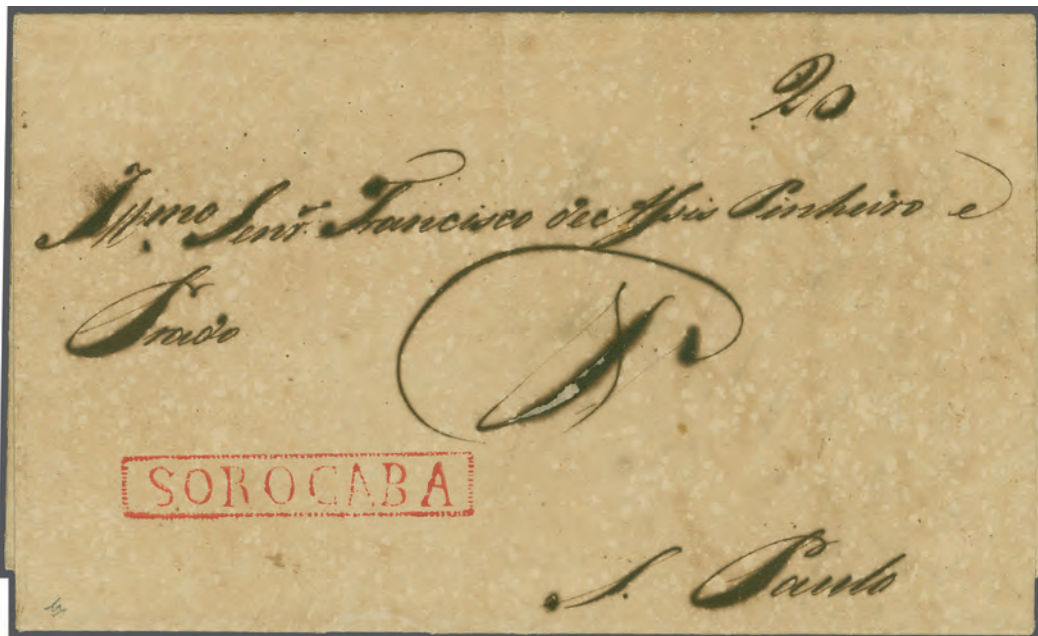 20
Illmo Senr. Francisco de Assis Pinheiro e
Prado
SOROCABA
S. Paulo